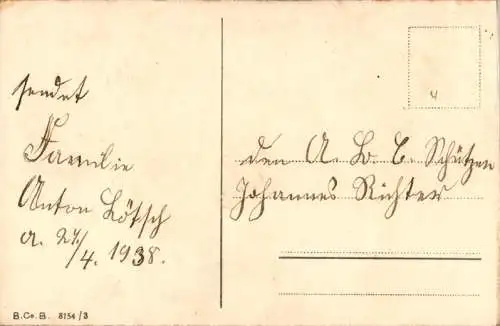 sendet
Familie
Anton Lötsch
a. 24/4. 1938.
den A. B. C. Schützen
Johannes Richter
4
B.Co.B. 8154/3